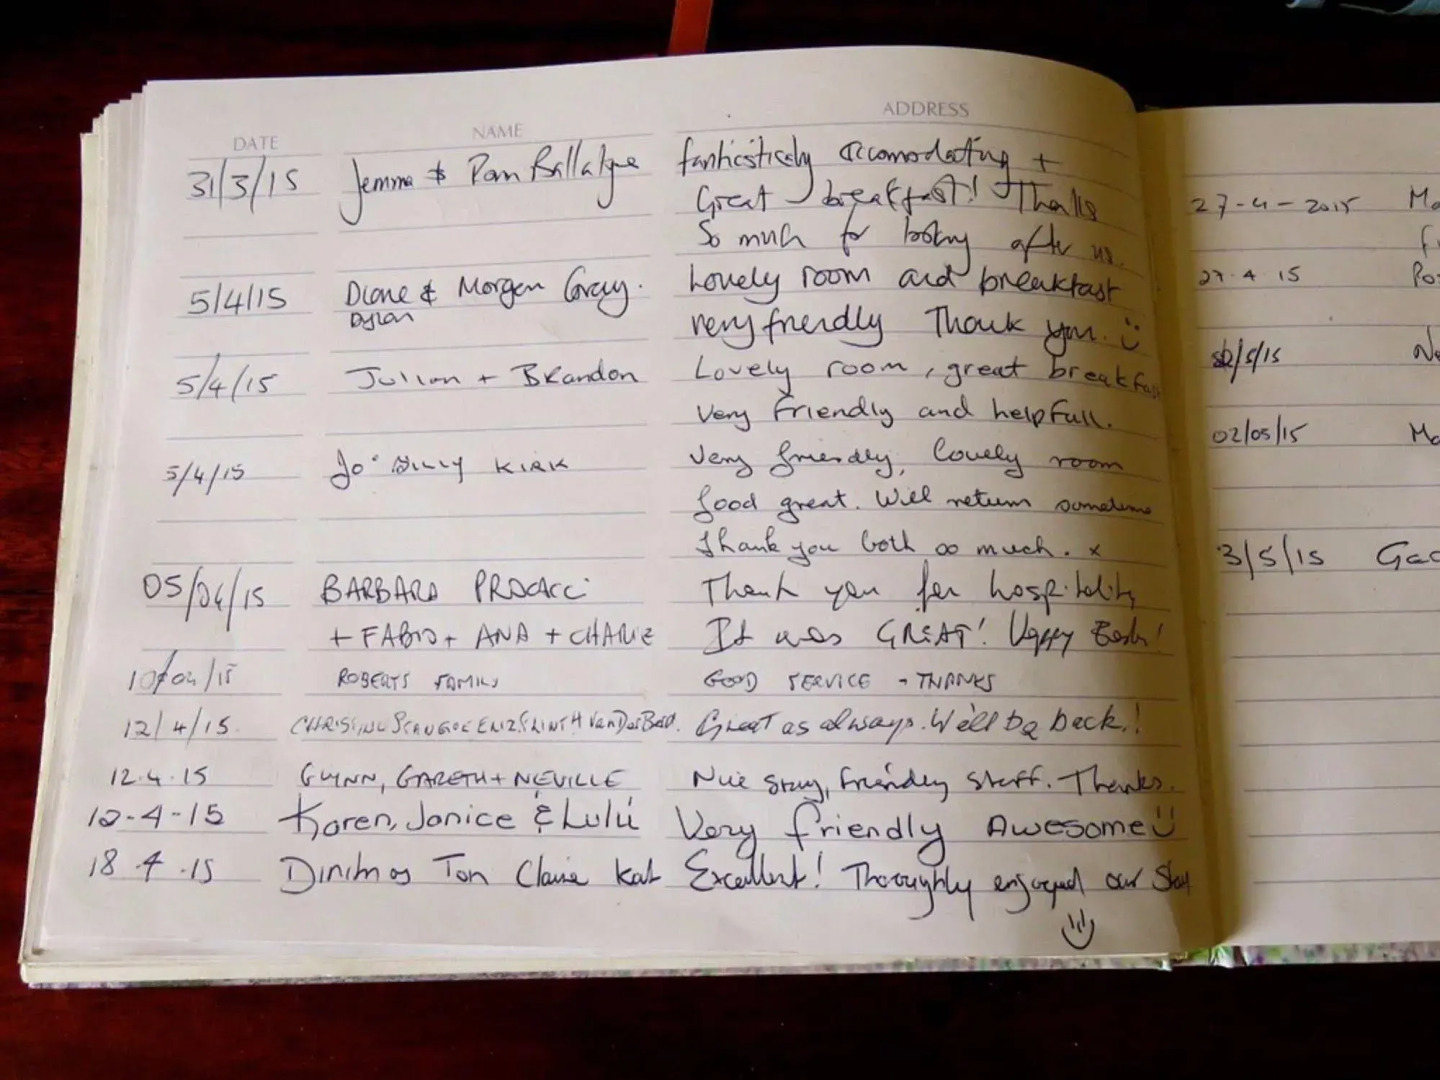 DATE NAME ADDRESS
31/3/15 Jemma & fantisticaly accomodating +
Great breakfast! Thanks
So much for looking after us.
5/4/15 Diane & Morgan Gray. Lovely room and breakfast
Dylan very friendly Thank you.
5/4/15 Julian + Brandon Lovely room, great breakfast
Very friendly and helpfull.
5/4/15 Jo Billy KIRK Very friendly, lovely room
food great. Will return sometime
Thank you both so much. x
05/04/15 BARBARA PROCACCI Thank you for hospitality
+ FABIO + ANA + CHARLIE It was GREAT! Happy Easter!
10/04/15 ROBERTS FAMILY GOOD SERVICE - THANKS
12/4/15. Great as always. We'll be back!
12.4.15 GLYNN, GARETH + NEVILLE Nice stay, friendly staff. Thanks.
12-4-15 Karen, Janice & Lulu Very friendly Awesome
18.4.15 Tom Claire Kat Excellent! Thoroughly enjoyed our Stay
27-4-2015 Ma
27.4.15
/5/15
02/05/15 Ma
3/5/15